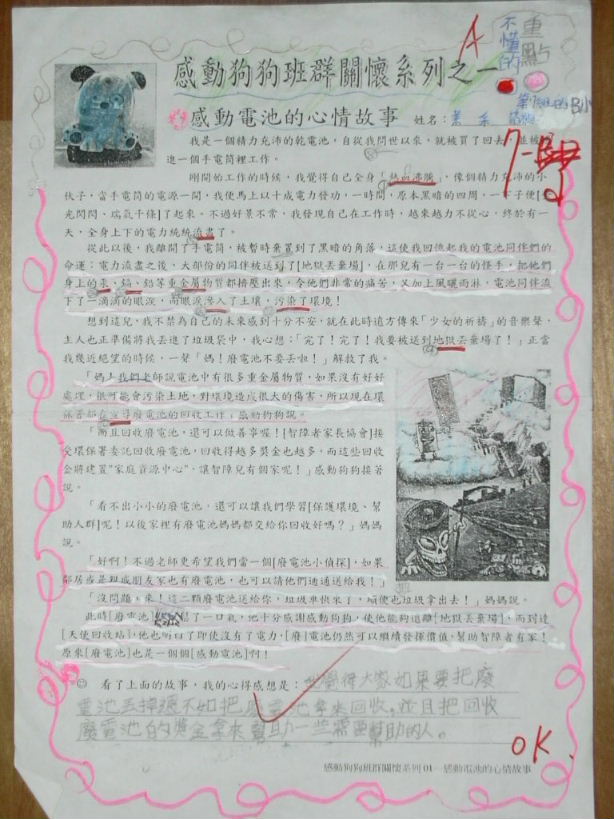 重點
不懂的
A
感動狗狗班群關懷系列之一
感動電池的心情故事 姓名：
我是一個精力充沛的乾電池，自從我問世以來，就被買了回去，並被
進一個手電筒裡工作。
剛開始工作的時候，我覺得自己全身「熱血沸騰」，像個精力充沛的小
伙子，當手電筒的電源一開，我便馬上以十成電力發功，一時間，原本黑暗的四周，一下子便[
光閃閃、瑞氣千條]了起來。不過好景不常，我發現自己在工作時，越來越力不從心，終於有一
天，全身上下的電力統統流盡了。
從此以後，我離開了手電筒，被暫時棄置到了黑暗的角落，這使我回憶起我的電池同伴們的
命運：電力流盡之後，大部份的同伴被送到了[地獄丟棄場]，在那兒有一台一台的怪手，把他們
身上的汞、鎘、鉛等重金屬物質都擠壓出來，令他們非常的痛苦，又加上風曬雨淋，電池同伴流
下了一滴滴的眼淚，而眼淚滲入了土壤，污染了環境！
想到這兒，我不禁為自己的未來感到十分不安，就在此時遠方傳來「少女的祈禱」的音樂聲，
主人也正準備將我丟進了垃圾袋中，我心想：「完了！完了！我要被送到地獄丟棄場了！」正當
我幾近絕望的時候，一聲「媽！廢電池不要丟啦！」解救了我。
「媽上我們老師說電池中有很多重金屬物質，如果沒有好好
處理，很可能會污染土地，對環境造成很大的傷害，所以現在環
保署都在宣導廢電池的回收工作」感動狗狗說。
「而且回收廢電池，還可以做善事喔！[智障者家長協會]接
受環保署委託回收廢電池，回收得越多獎金也越多，而這些回收
金將建置"家庭資源中心"，讓智障兒有個家呢！」感動狗狗接著
說。
「看不出小小的廢電池，還可以讓我們學習[保護環境、幫
助人群]呢！以後家裡有廢電池媽媽都交給你回收好嗎？」媽媽
說。
「好啊！不過老師更希望我們當一個[廢電池小偵探]，如果
鄰居或是親戚朋友家也有廢電池，也可以請他們通通送給我！」
「沒問題，來！這二顆廢電池送給你，垃圾車快來了，順便也垃圾拿出去！」媽媽說。
此時[廢電池]鬆了一口氣，他十分感謝感動狗狗，使他能夠遠離[地獄丟棄場]，而到達
[天使回收站]，他也明白了即使沒有了電力，[廢]電池仍然可以繼續發揮價值，幫助智障者有家！
原來[廢電池]也是一個個[感動電池]啊！
☺ 看了上面的故事，我的心得感想是：我覺得大家如果要把廢
電池丟掉還不如把廢電池拿來回收，並且把回收
廢電池的獎金拿來幫助一些需要幫助的人。
OK
感動狗狗班群關懷系列 01—感動電池的心情故事